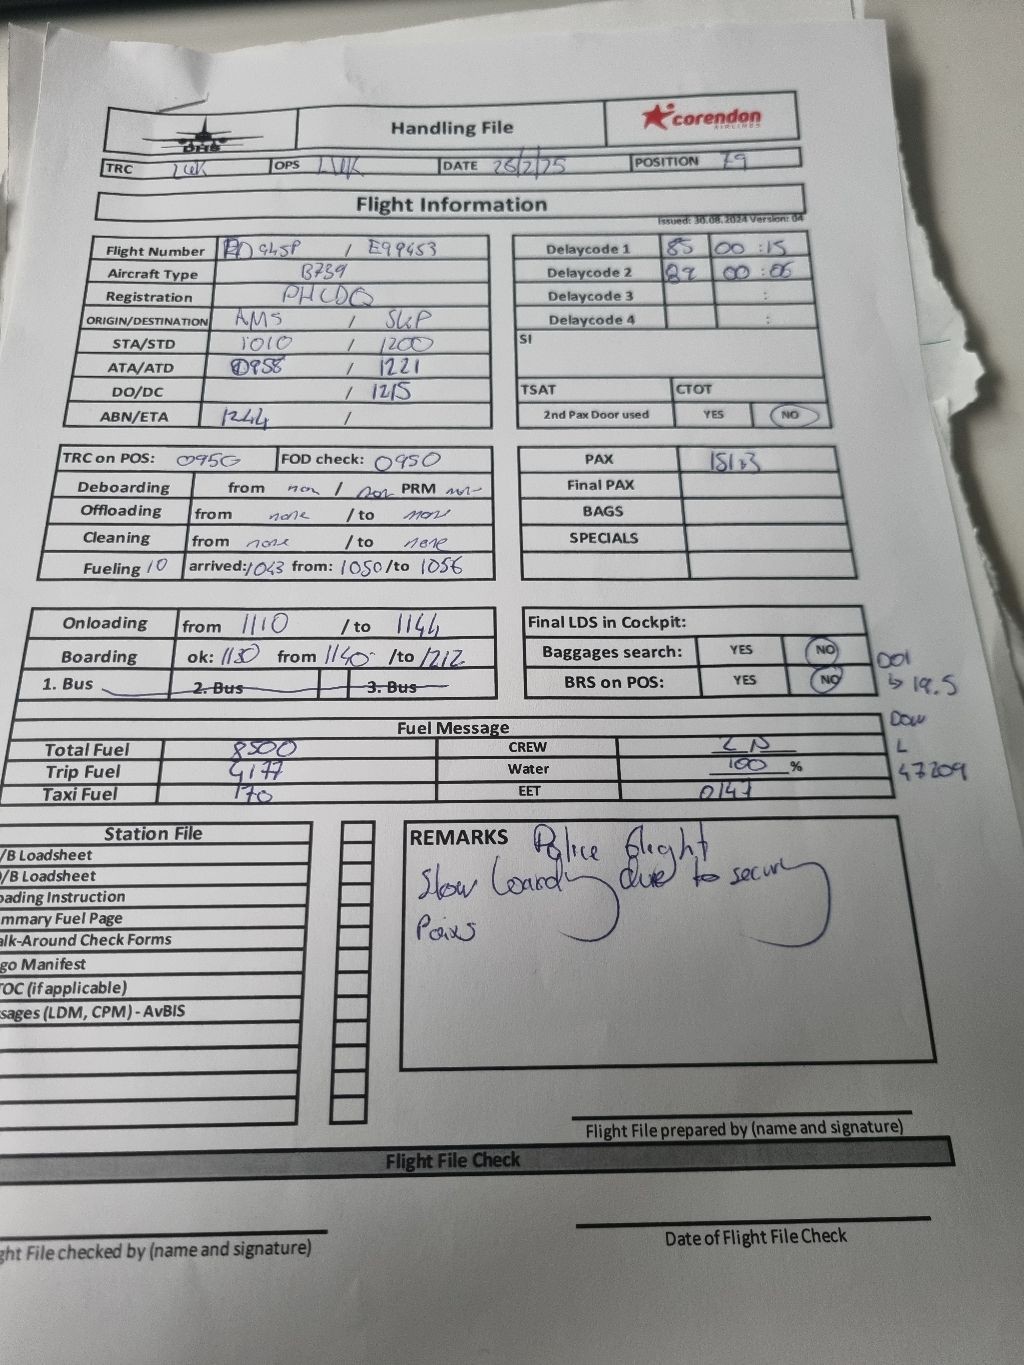 DHS Handling File corendon AIRLINES
TRC LUK OPS LUK DATE 26/2/25 POSITION 79
Flight Information
Issued: 30.08.2024 Version: 04
Flight Number 945P / E99453
Aircraft Type B739
Registration PHCDQ
ORIGIN/DESTINATION AMS / SKP
STA/STD 1010 / 1200
ATA/ATD 0958 / 1221
DO/DC / 1215
ABN/ETA 1244 /
Delaycode 1 85 00 : 15
Delaycode 2 89 00 : 06
Delaycode 3 :
Delaycode 4 :
SI
TSAT CTOT
2nd Pax Door used YES NO
TRC on POS: 0950 FOD check: 0950
Deboarding from non / non PRM non
Offloading from none / to none
Cleaning from none / to none
Fueling 10 arrived: 1043 from: 1050 /to 1056
PAX 151+3
Final PAX
BAGS
SPECIALS
Onloading from 1110 / to 1144
Boarding ok: 1130 from 1140 /to 1212
1. Bus 2. Bus 3. Bus
Final LDS in Cockpit:
Baggages search: YES NO
BRS on POS: YES NO
DOI
↳ 19.5
DOW
L
47209
Fuel Message
Total Fuel 8500 CREW
Trip Fuel 4177 Water 100 %
Taxi Fuel 170 EET 0147
Station File
/B Loadsheet
/B Loadsheet
oading Instruction
mmary Fuel Page
alk-Around Check Forms
go Manifest
TOC (if applicable)
sages (LDM, CPM) - AvBIS
REMARKS Police flight
Slow boarding due to security
Paixs
Flight File prepared by (name and signature)
Flight File Check
ght File checked by (name and signature)
Date of Flight File Check